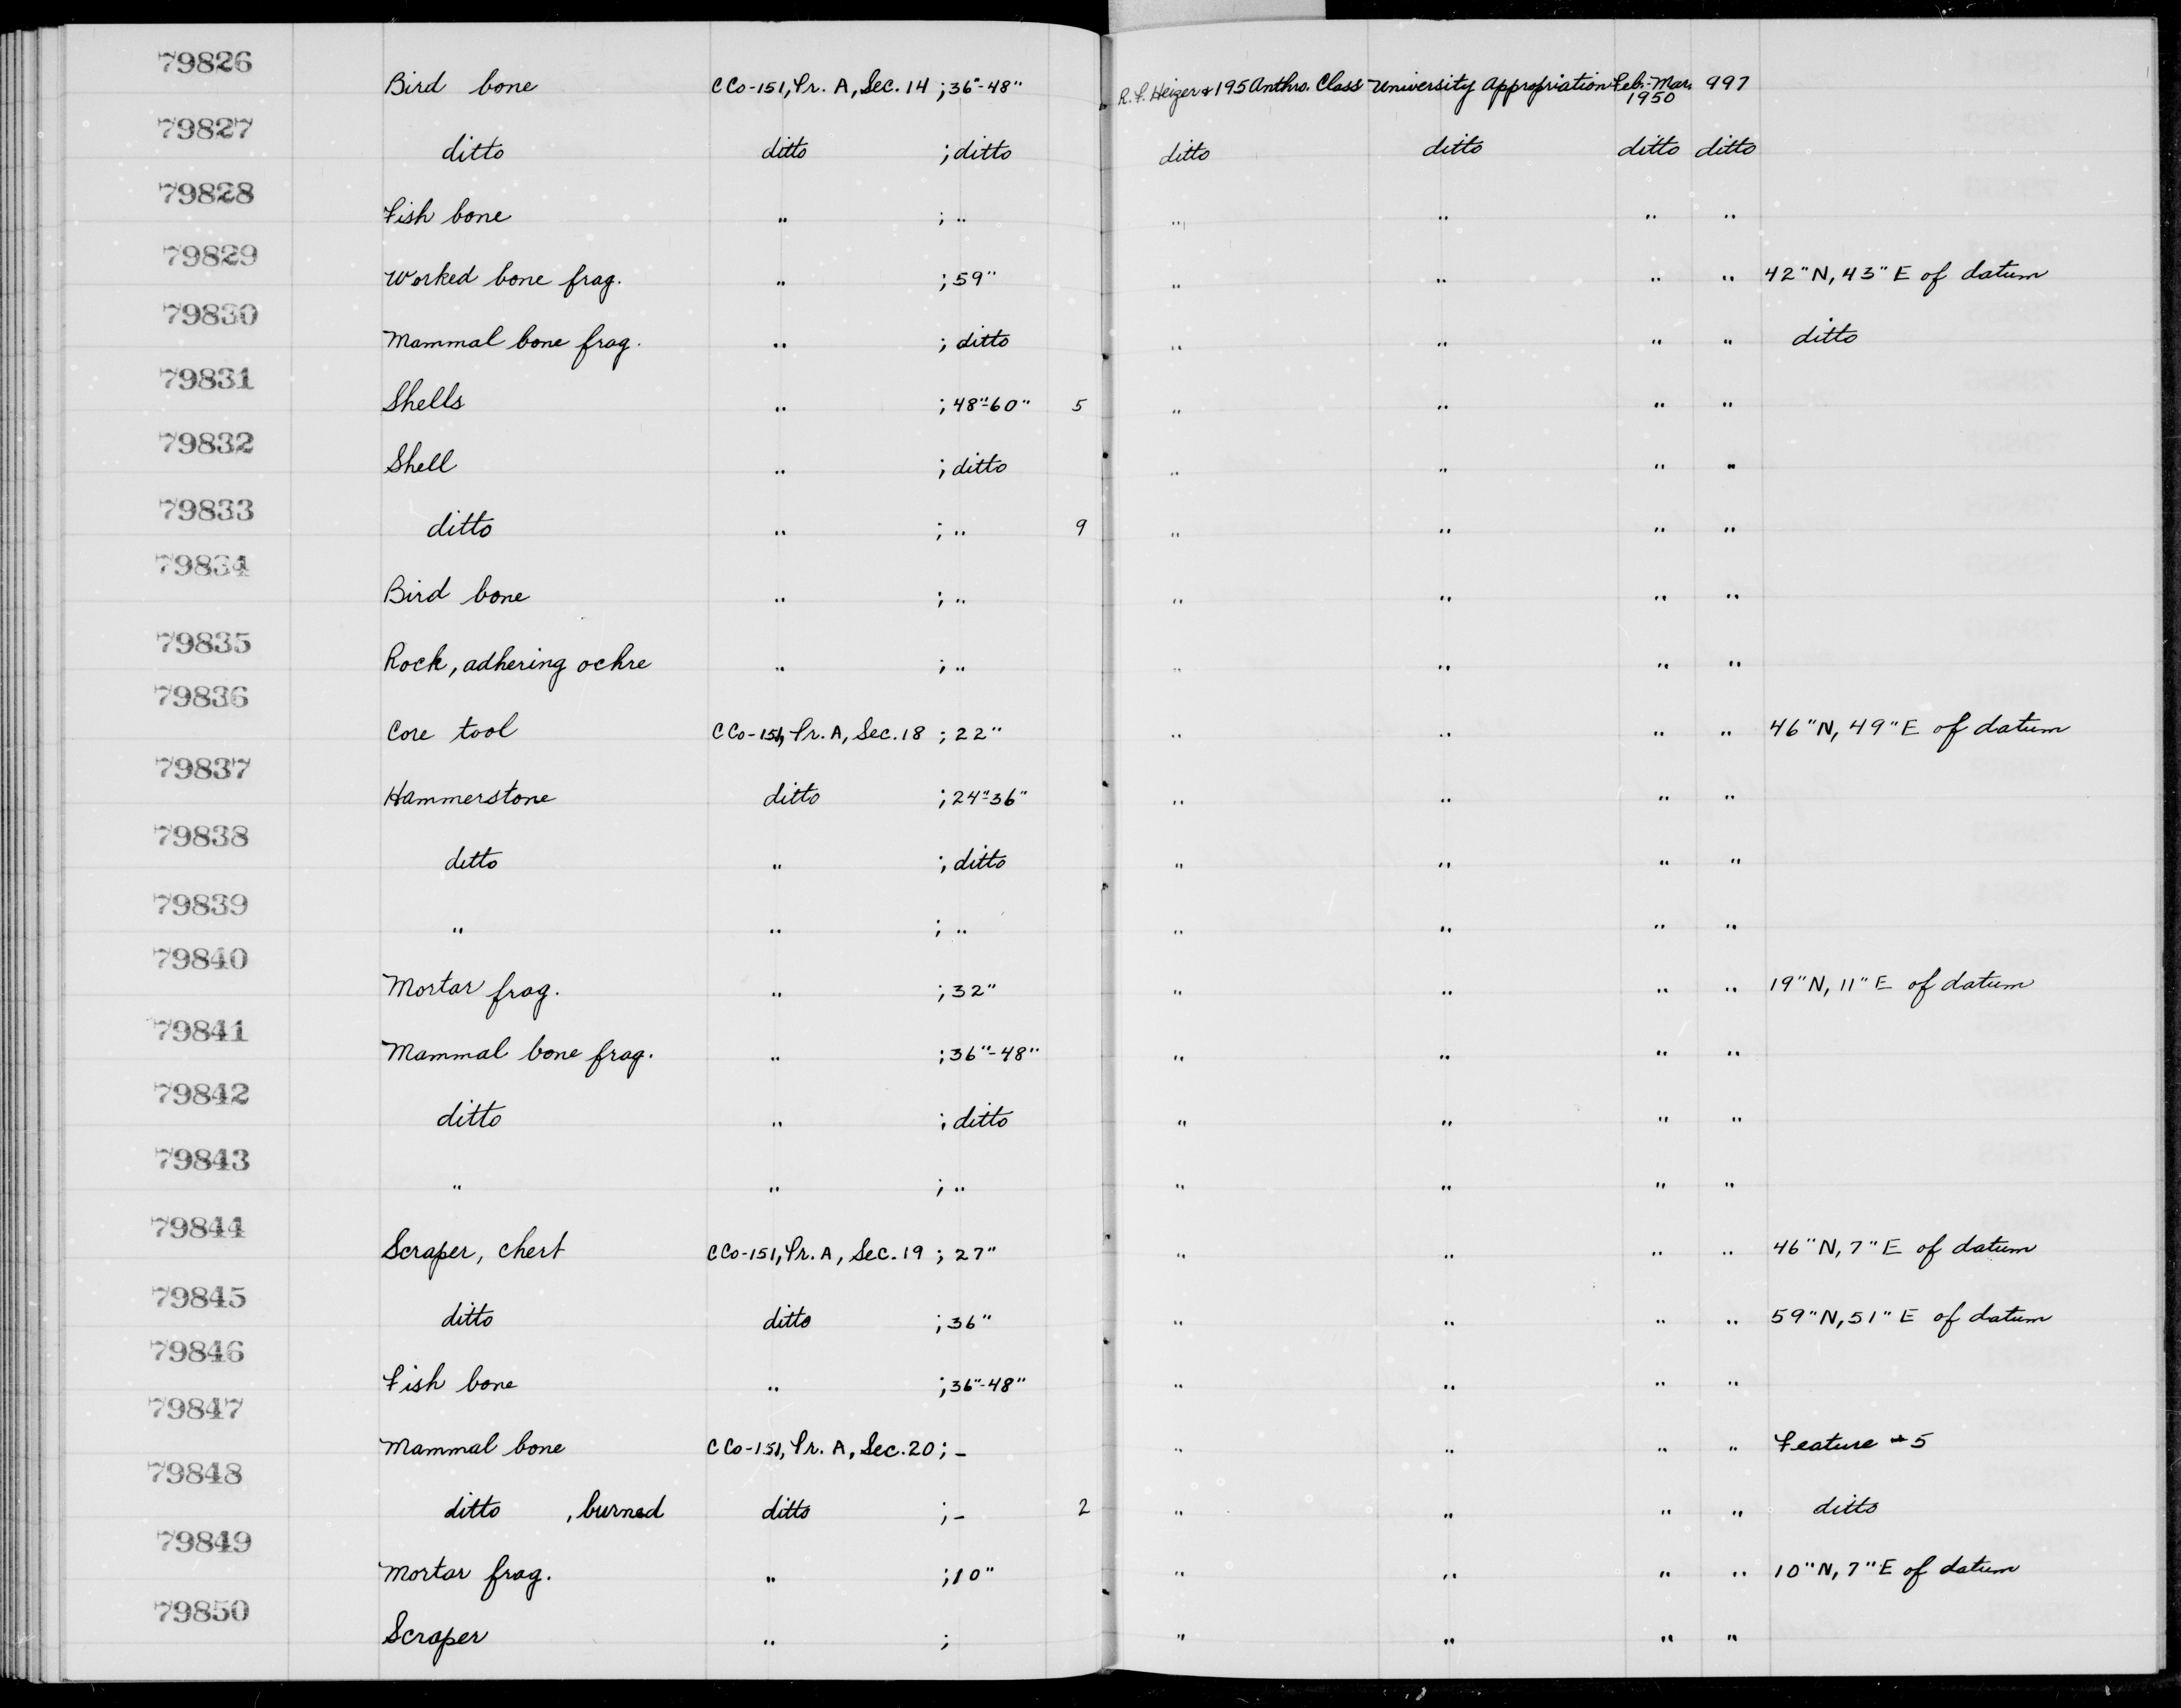 79826 Bird bone CCo-151, Tr. A, Sec. 14 ; 36"-48" R. F. Heizer & 195 Anthro. Class University Appropriation Feb.-Mar. 1950 997
79827 ditto ditto ; ditto ditto ditto ditto ditto
79828 Fish bone " ; " " " " "
79829 Worked bone frag. " ; 59" " " " " 42"N, 43"E of datum
79830 Mammal bone frag. " ; ditto " " " " ditto
79831 Shells " ; 48"-60" 5 " " " "
79832 Shell " ; ditto " " " "
79833 ditto " ; " 9 " " " "
79834 Bird bone " ; " " " " "
79835 Rock, adhering ochre " ; " " " " "
79836 Core tool CCo-151, Tr. A, Sec. 18 ; 22" " " " " 46"N, 49"E of datum
79837 Hammerstone ditto ; 24"-36" " " " "
79838 ditto " ; ditto " " " "
79839 " " ; " " " " "
79840 Mortar frag. " ; 32" " " " " 19"N, 11"E of datum
79841 Mammal bone frag. " ; 36"-48" " " " "
79842 ditto " ; ditto " " " "
79843 " " ; " " " " "
79844 Scraper, chert CCo-151, Tr. A, Sec. 19 ; 27" " " " " 46"N, 7"E of datum
79845 ditto ditto ; 36" " " " " 59"N, 51"E of datum
79846 Fish bone " ; 36"-48" " " " "
79847 Mammal bone CCo-151, Tr. A, Sec. 20 ; - " " " " Feature #5
79848 ditto , burned ditto ; - 2 " " " " ditto
79849 Mortar frag. " ; 10" " " " " 10"N, 7"E of datum
79850 Scraper " ; " " " "